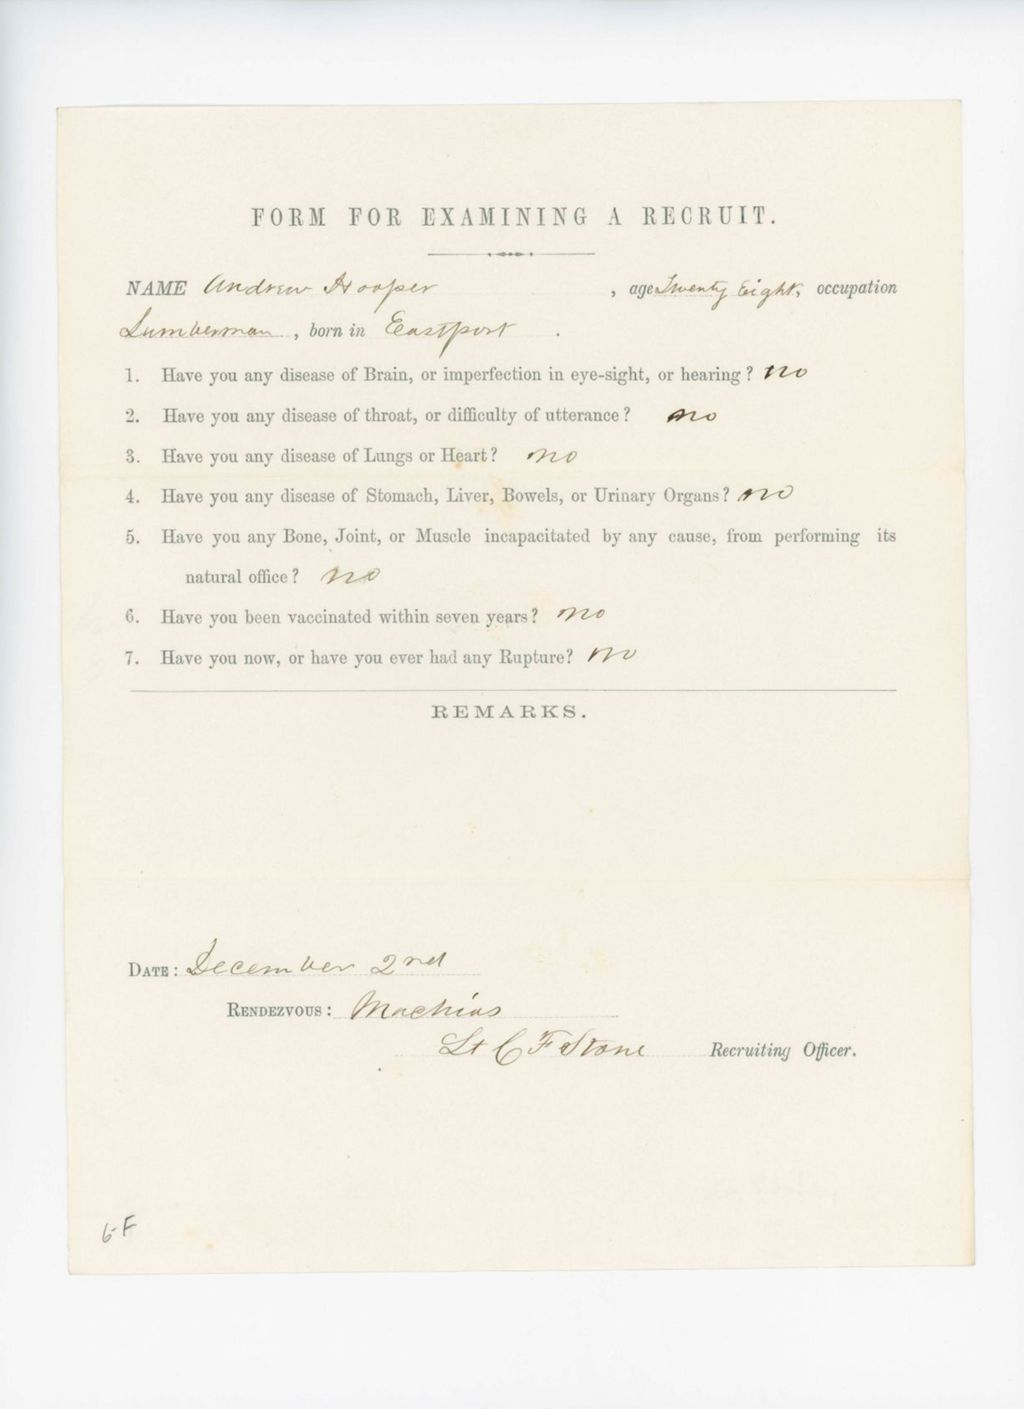 FORM FOR EXAMINING A RECRUIT.
NAME Andrew Hooper , age Twenty Eight, occupation
Lumberman , born in Eastport .
1. Have you any disease of Brain, or imperfection in eye-sight, or hearing? no
2. Have you any disease of throat, or difficulty of utterance? no
3. Have you any disease of Lungs or Heart? no
4. Have you any disease of Stomach, Liver, Bowels, or Urinary Organs? no
5. Have you any Bone, Joint, or Muscle incapacitated by any cause, from performing its
natural office? no
6. Have you been vaccinated within seven years? no
7. Have you now, or have you ever had any Rupture? no
REMARKS.
DATE: December 2nd
RENDEZVOUS: Machias
Lt C F Stone Recruiting Officer.
6-F